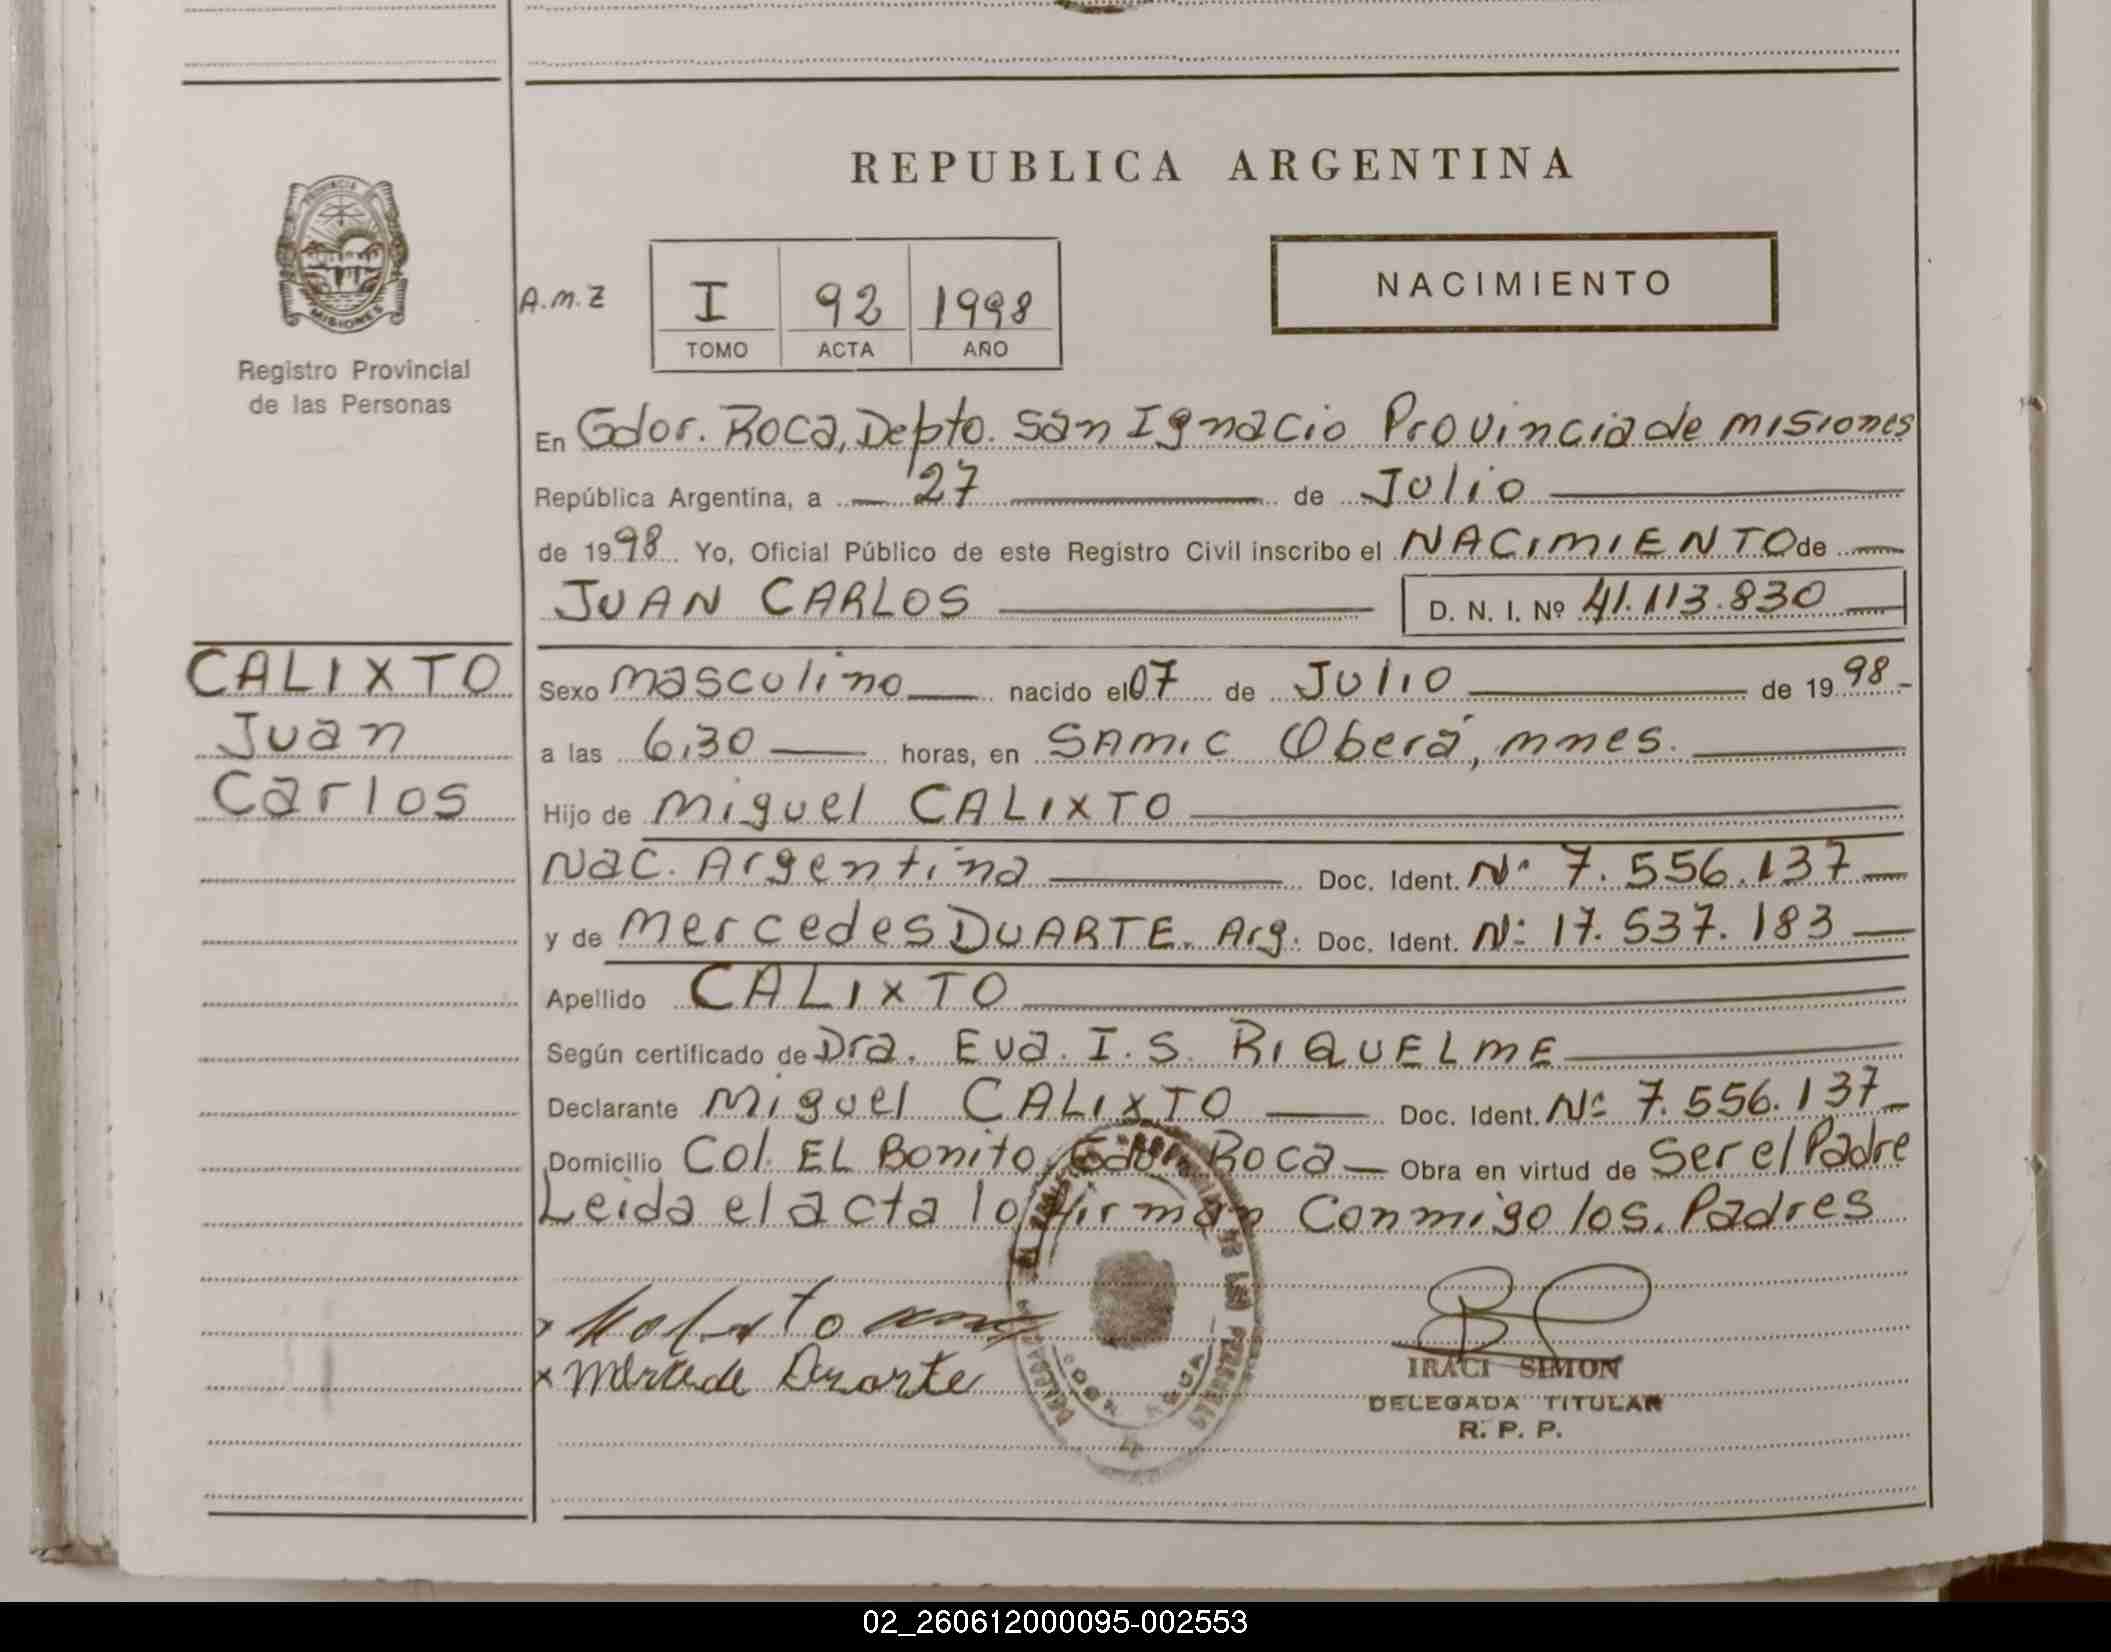 REPUBLICA ARGENTINA
PROVINCIA
MISIONES
Registro Provincial
de las Personas
A.M.Z
I 92 1998
TOMO ACTA AÑO
NACIMIENTO
En Gdor. Roca, Depto. San Ignacio Provincia de misiones
República Argentina, a 27 de Julio
de 1998 Yo, Oficial Público de este Registro Civil inscribo el NACIMIENTO de
JUAN CARLOS D. N. I. Nº 41.113.830
CALIXTO
Juan
Carlos
Sexo masculino nacido el 07 de Julio de 1998
a las 6,30 horas, en SAMIC Oberá, mnes.
Hijo de Miguel CALIXTO
Nac. Argentina Doc. Ident. Nº 7.556.137
y de Mercedes DUARTE. Arg. Doc. Ident. Nº 17.537.183
Apellido CALIXTO
Según certificado de Dra. Eva. I. S. RIQUELME
Declarante Miguel CALIXTO Doc. Ident. Nº 7.556.137
Domicilio Col. EL Bonito, Gdor. Roca Obra en virtud de Ser el Padre
Leida el acta lo firman Conmigo los Padres
x Mercede Duarte
IRACI SIMON
DELEGADA TITULAR
R. P. P.
02_260612000095-002553